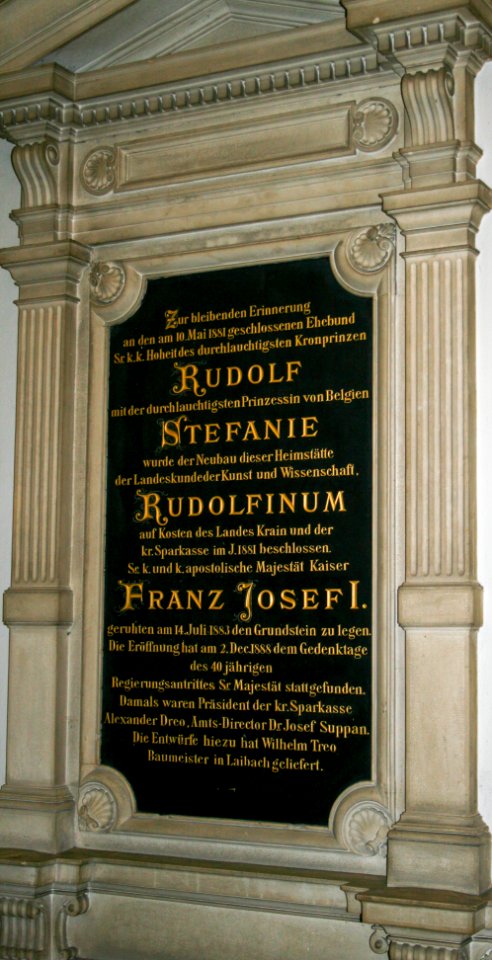 Zur bleibenden Erinnerung
an den am 10. Mai 1881 geschlossenen Ehebund
Sr. k.k. Hoheit des durchlauchtigsten Kronprinzen
RUDOLF
mit der durchlauchtigsten Prinzessin von Belgien
STEFANIE
wurde der Neubau dieser Heimstätte
der Landeskunde der Kunst und Wissenschaft,
RUDOLFINUM
auf Kosten des Landes Krain und der
kr. Sparkasse im J. 1881 beschlossen.
Se. k. und k. apostolische Majestät Kaiser
FRANZ JOSEF I.
geruhten am 14. Juli 1883 den Grundstein zu legen.
Die Eröffnung hat am 2. Dec. 1888 dem Gedenktage
des 40 jährigen
Regierungsantrittes Sr. Majestät stattgefunden.
Damals waren Präsident der kr. Sparkasse
Alexander Dreo, Amts-Director Dr. Josef Suppan.
Die Entwürfe hiezu hat Wilhelm Treo
Baumeister in Laibach geliefert.